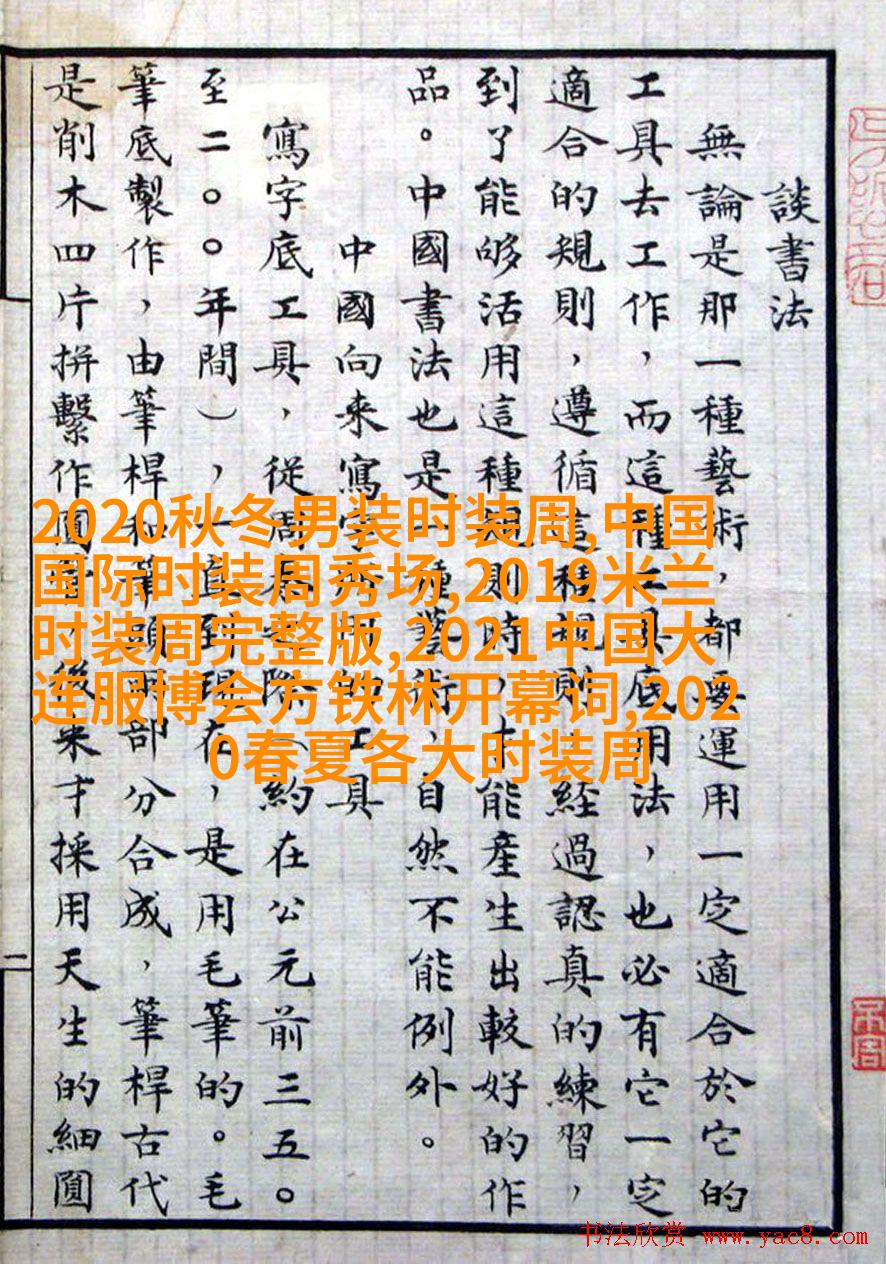 談書法
無論是那一種藝術，都要運用一定適合於它的
工具去工作，而這種工具底用法，也必有它一定
適合的規則，遵循這種規則，經過認真的練習，
到了能够活用這種規則時，才能產生出較好的作
品。中國書法也是一種藝術，自然不能例外。
中國向來寫字所用的工具
寫字底工具，從周際（約在公元前三五〇
至二〇〇年間），一直到現在，是用毛筆的。毛
筆底製作，由筆桿和筆頭兩部分合成，筆桿古代
是削木四片拼繫作圓，後來才採用天生的細圓
二
2020秋冬男装时装周,中国
国际时装周秀场,2019米兰
时装周完整版,2021中国大
连服博会方铁林开幕词,202
0春夏各大时装周
书法欣赏 www.yac8.com